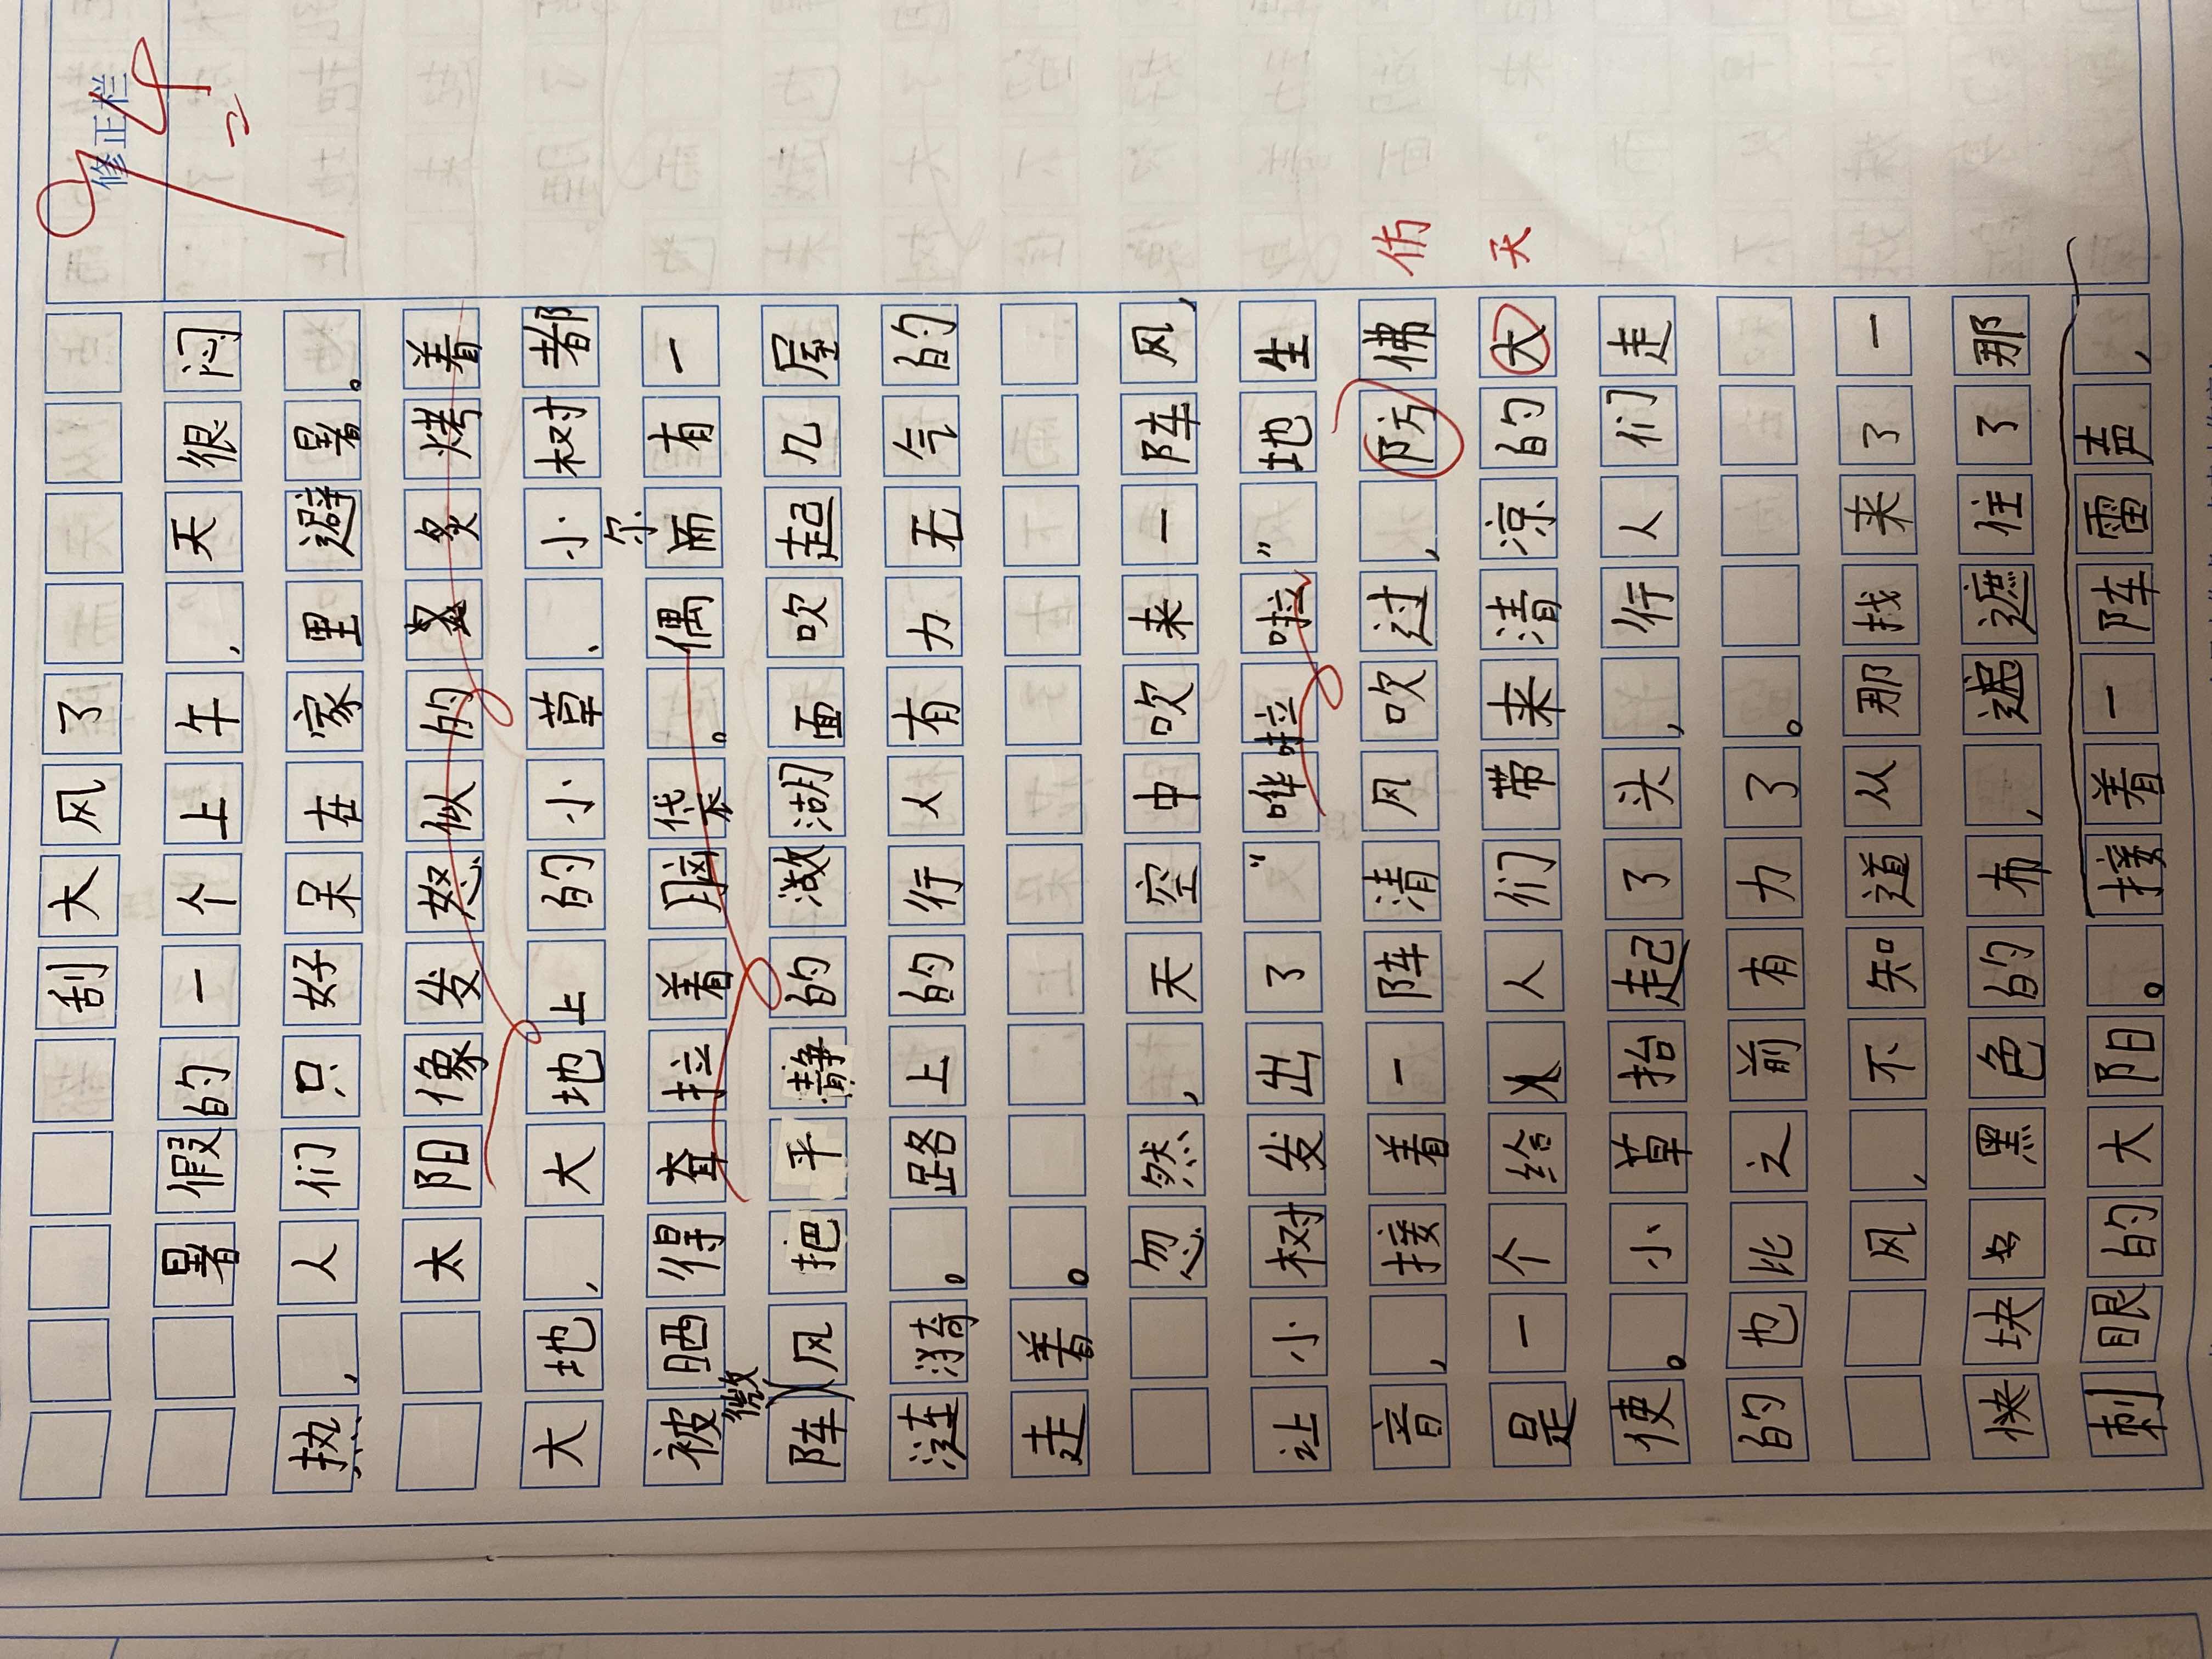 修正栏
94
刮大风了
暑假的一个上午，天很闷
热，人们只好呆在家里避暑。
太阳像发怒似的炙烤着
大地，大地上的小草、小树都
被晒得耷拉着脑袋。偶尔有一
阵微风把平静的湖面吹起几层
涟漪。路上的行人有力无气的
走着。
忽然，天空中吹来一阵风，
让小树发出了“哗啦啦”地生
音，接着一阵清风吹过，防佛
仿
是一个给人们带来清凉的大
天
使。小草抬起了头，行人们走
的也比之前有力了。
风，不知道从那找来了一
块黑色的布，遮住了那
刺眼的大阳。接着一阵雷声，